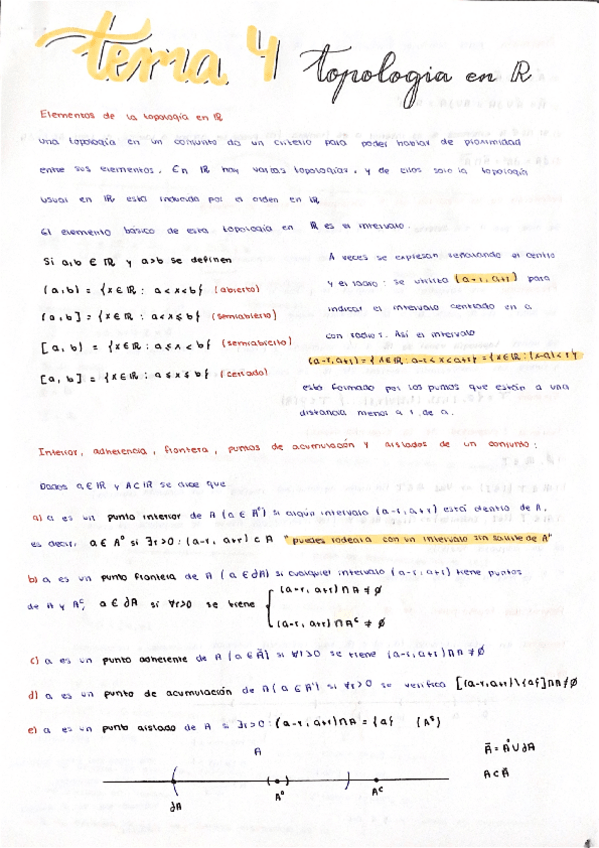 tema 4 topologia en ℝ
Elementos de la topología en ℝ
Una topología en un conjunto da un criterio para poder hablar de proximidad
entre sus elementos. En ℝ hay varias topologías, y de ellas solo la topología
usual en ℝ está inducida por el orden en ℝ.
El elemento básico de esta topología en ℝ es el intervalo.
Si a,b ∈ ℝ y a>b se definen
(a,b) = {x∈ℝ : a<x<b} (abierto)
(a,b] = {x∈ℝ : a<x≤b} (semiabierto)
[a,b) = {x∈ℝ : a≤x<b} (semiabierto)
[a,b] = {x∈ℝ : a≤x≤b} (cerrado)
A veces se expresan señalando el centro
y el radio: se utiliza (a-r, a+r) para
indicar el intervalo centrado en a
con radio r. Así el intervalo
(a-r,a+r) = { x∈ℝ: a-r<x<a+r} = {x∈ℝ: |x-a|<r}
está formado por los puntos que están a una
distancia menor a r de a.
Interior, adherencia, frontera, puntos de acumulación y aislados de un conjunto:
Dados a∈ℝ y A⊂ℝ se dice que
a) a es un punto interior de A (a∈A°) si algún intervalo (a-r, a+r) está dentro de A,
es decir, a∈A° si ∃r>0 : (a-r, a+r) ⊂ A "puedes rodearla con un intervalo sin salirte de A"
b) a es un punto frontera de A (a∈∂A) si cualquier intervalo (a-r, a+r) tiene puntos
de A y Aᶜ, a∈∂A si ∀r>0 se tiene { (a-r, a+r)∩A ≠ ∅
(a-r, a+r)∩Aᶜ ≠ ∅
c) a es un punto adherente de A (a∈Ā) si ∀r>0 se tiene (a-r, a+r)∩A ≠ ∅
d) a es un punto de acumulación de A (a∈A') si ∀r>0 se verifica [(a-r,a+r)\{a}]∩A ≠ ∅
e) a es un punto aislado de A si ∃r>0 : (a-r, a+r)∩A = {a} (Aˢ)
A
Ā = A°∪∂A
A⊂Ā
∂A
A°
Aᶜ